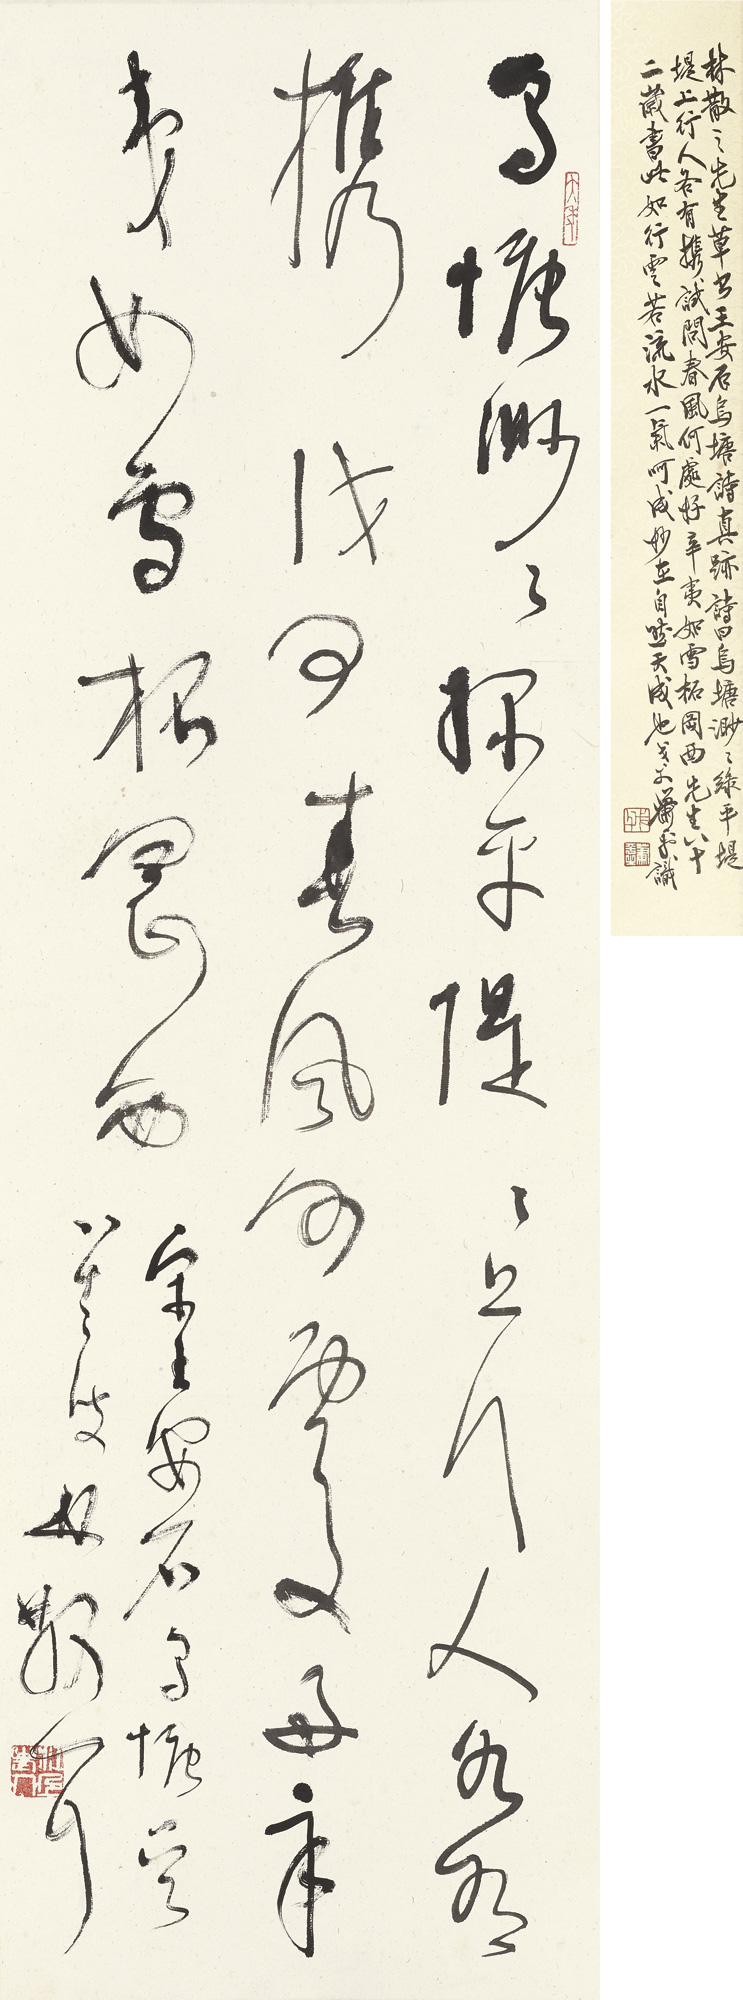 烏塘渺々綠平堤々上行人各有
攜試問春風何處好辛
夷如雪柘岡西
宋王安石烏塘
叟林散耳
林散之先生草書王安石烏塘詩真跡詩曰烏塘渺々綠平堤
堤上行人各有攜試問春風何處好辛夷如雪柘岡西先生八十
二歲書此如行雲若流水一氣呵成妙在自然天成也蕭平識